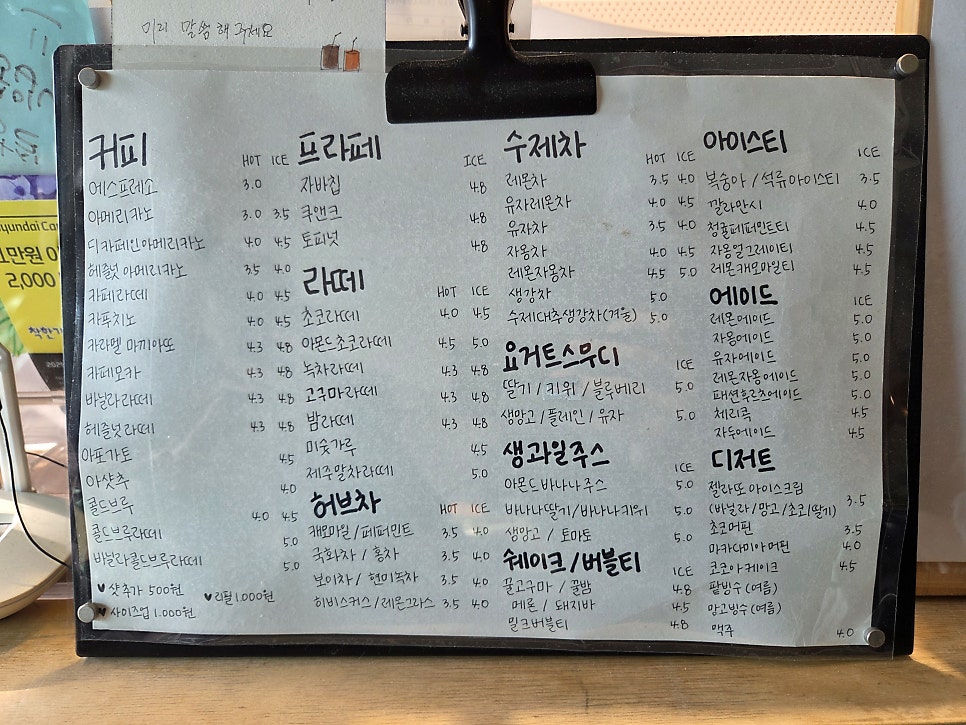 미리 말씀해주세요
Hyundai Car
1만원 이
2,000
착한가
커피 HOT ICE
에스프레소 3.0
아메리카노 3.0 3.5
디카페인아메리카노 4.0 4.5
헤즐넛 아메리카노 3.5 4.0
카페라떼 4.0 4.5
카푸치노 4.0 4.5
카라멜 마끼아또 4.3 4.8
카페모카 4.3 4.8
바닐라라떼 4.3 4.8
헤즐넛라떼 4.3 4.8
아포가토 4.5
아샷추 4.0
콜드브루 4.0 4.5
콜드브루라떼 5.0
바닐라콜드브루라떼 5.0
♥ 샷추가 500원 ♥ 리필 1.000원
♥ 사이즈업 1.000원
프라페 ICE
자바칩 4.8
쿠앤크 4.8
토피넛 4.8
라떼 HOT ICE
초코라떼 4.0 4.5
아몬드초코라떼 4.5 5.0
녹차라떼 4.3 4.8
고구마라떼 4.3 4.8
밤라떼 4.3 4.8
미숫가루 4.5
제주말차라떼 5.0
허브차 HOT ICE
캐모마일 / 페퍼민트 3.5 4.0
국화차 / 홍차 3.5 4.0
보이차 / 현미녹차 3.5 4.0
히비스커스 / 레몬그라스 3.5 4.0
수제차 HOT ICE
레몬차 3.5 4.0
유자레몬차 4.0 4.5
유자차 3.5 4.0
자몽차 4.0 4.5
레몬자몽차 4.5 5.0
생강차 5.0
수제대추생강차(겨울) 5.0
요거트스무디 ICE
딸기 / 키위 / 블루베리 5.0
생망고 / 플레인 / 유자 5.0
생과일주스 ICE
아몬드바나나주스 5.0
바나나딸기/바나나키위 5.0
생망고 / 토마토 5.0
쉐이크/버블티 ICE
꿀고구마 / 꿀밤 4.8
메론 / 돼지바 4.5
밀크버블티 4.8
아이스티 ICE
복숭아 / 석류아이스티 3.5
깔라만시 4.0
청귤페퍼민트티 4.5
자몽얼그레이티 4.5
레몬캐모마일티 4.5
에이드 ICE
레몬에이드 5.0
자몽에이드 5.0
유자에이드 5.0
레몬자몽에이드 5.0
패션후르츠에이드 5.0
체리콕 4.5
자두에이드 4.5
디저트
젤라또 아이스크림
(바닐라/망고/초코/딸기) 3.5
초코머핀 3.5
마카다미아머핀 4.0
코코아케이크 4.5
팥빙수(여름)
망고빙수(여름)
맥주 4.0